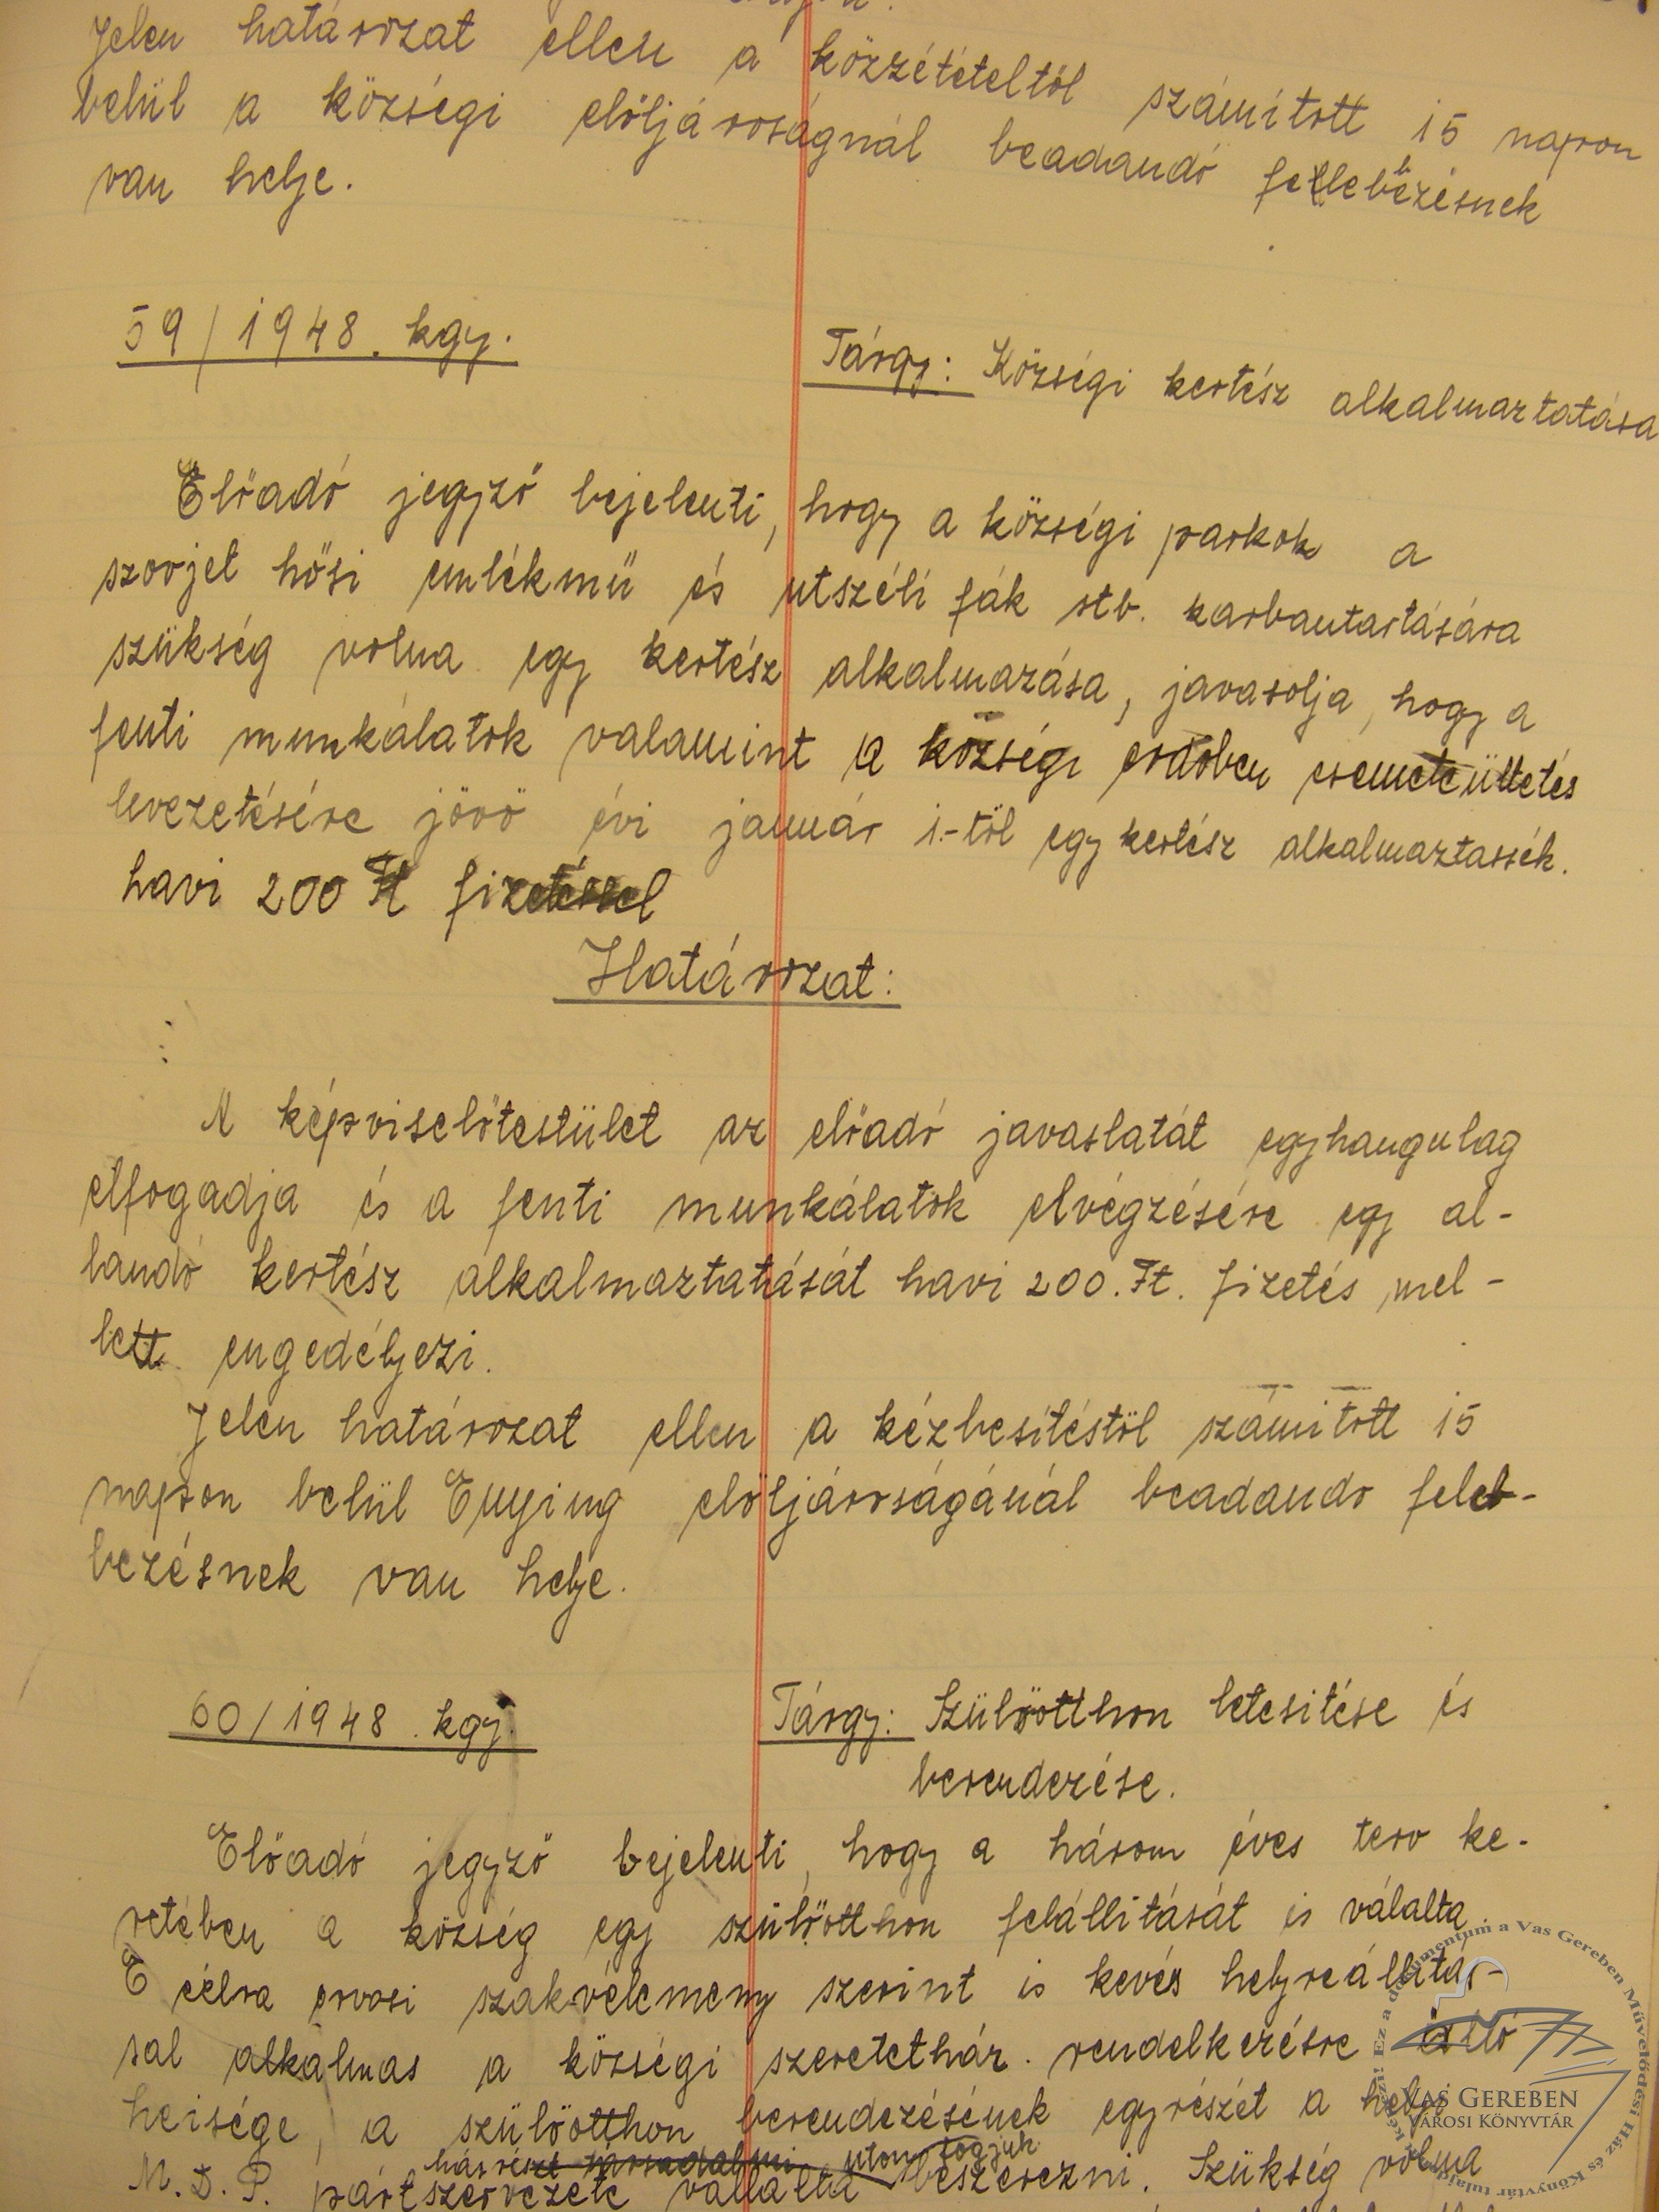 Jelen határozat ellen a közzétételtől számított 15 napon
belül a községi elöljáróságnál beadandó fellebbezésnek
van helye.
59/1948. kgy.
Tárgy: Községi kertész alkalmaztatása
Előadó jegyző bejelenti, hogy a községi parkok a
szovjet hősi emlékmű és utszéli fák stb. karbantartására
szükség volna egy kertész alkalmazása, javasolja, hogy a
fenti munkálatok valamint a községi erdőben csemeteültetés
levezetésére jövő évi január 1.-től egy kertész alkalmaztassék.
havi 200 Ft fizetéssel
Határozat:
A képviselőtestület az előadó javaslatát egyhangulag
elfogadja és a fenti munkálatok elvégzésére egy al-
landó kertész alkalmaztatását havi 200. Ft. fizetés mel-
lett engedélyezi.
Jelen határozat ellen a kézbesítéstől számitott 15
napon belül Enying elöljáróságánál beadando feleb-
bezésnek van helye.
60/1948. kgy.
Tárgy: Szülőotthon letesitése és
berendezése.
Előadó jegyző bejelenti, hogy a három éves terv ke-
retében a község egy szülőotthon felállitását is válalta.
E célra orvosi szakvélemeny szerint is kevés helyreállitás-
sal alkalmas a községi szeretetház rendelkezésre álló
heisége, a szülőotthon berendezésének egyrészét a helyi
társadalmi uton fogjuk
M.D.P. pártszervezete vállalta beszerezni. Szükség volna
Ez a dokumentum a Vas Gereben Művelődési Ház és Könyvtár tulajdonát képezi!
VAS GEREBEN
VÁROSI KÖNYVTÁR